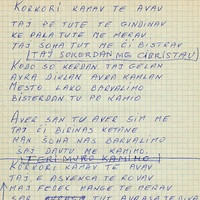 KORKORI KAMAV TE AVAV
TAJ PE TUTE TE GINDINAV
KE PALA TUTE ME MERAV
TAJ SOHA TUT ME ČI BISTRAV
(TAJ SOKERDAN ME ČIBRISTAV)
KODO SO KERDAN TAJ GELAN
AVRA DIKLAN AVRA KAMLAN
MESTO LAKO BARVALIMO
BISTERDAN TU PO KAMIO
AVER SAN TU AVER SIM ME
TAJ ČI BIRINAS KETANE
MAN SOHA NAS BARVALIMO
SAJ DAVTU ME KAMIMO.
FERI MURO KAMIMO
KORKORI KAMAV TE AVAV
TAJ E ASVENCA TE ROVAV
MAJ FEDEC MANGE TE MERAV
SAR TUT AVRASA TE DIKAV